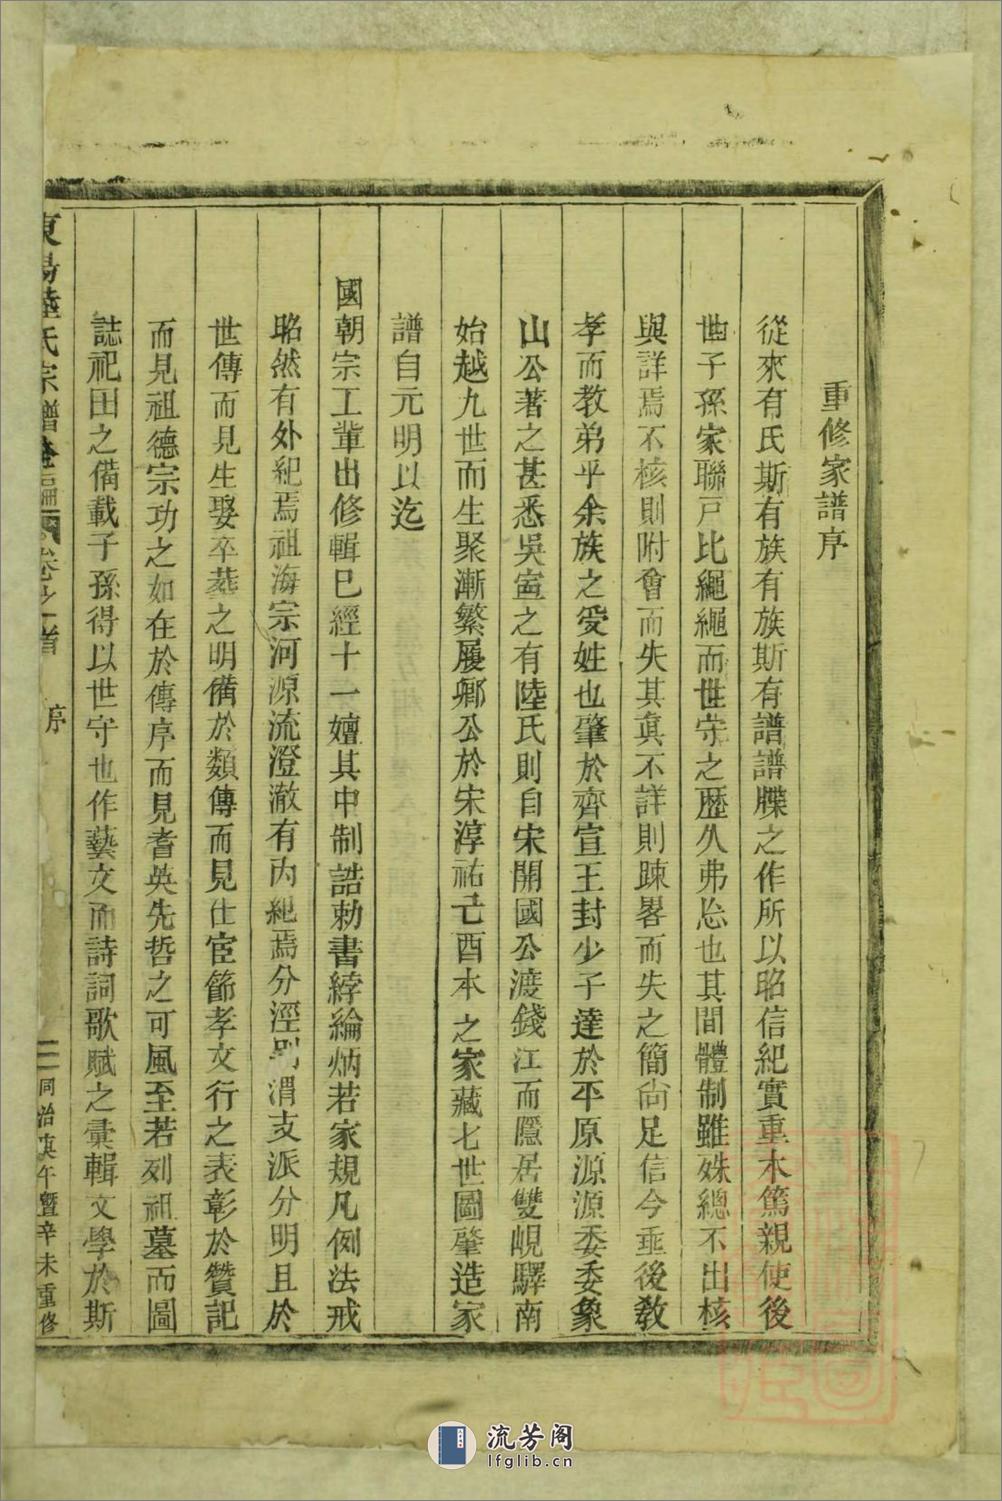 重修家譜序
從來有氏斯有族有族斯有譜譜牒之作所以昭信紀實重本篤親使後
世子孫家聯戶比繩繩而世守之歷久弗忘也其間體制雖姝總不出核
與詳焉不核則附會而失其眞不詳則踈畧而失之簡尙足信今垂後敎
孝而教弟乎余族之受姓也肇於齊宣王封少子達於平原源源委委象
山公著之甚悉吳寍之有陸氏則自宋開國公渡錢江而隱居雙峴驛南
始越九世而生聚漸繁履卿公於宋淳祐己酉本之家藏七世圖肇造家
譜自元明以迄
國朝宗工輩出修輯已經十一嬗其中制誥勅書綍綸炳若家規凡例法戒
昭然有外紀焉祖海宗河源流澄澈有內紀焉分涇別渭支派分明且於
世傳而見生娶卒葬之明備於類傳而見仕宦節孝文行之表彰於贊記
而見祖德宗功之如在於傳序而見耆英先哲之可風至若列祖墓而圖
誌祀田之備載子孫得以世守也作藝文而詩詞歌賦之彙輯文學於斯
東陽陸氏宗譜 卷之首 序 一 同治庚午曁辛未重修
流芳阁
lfglib.cn